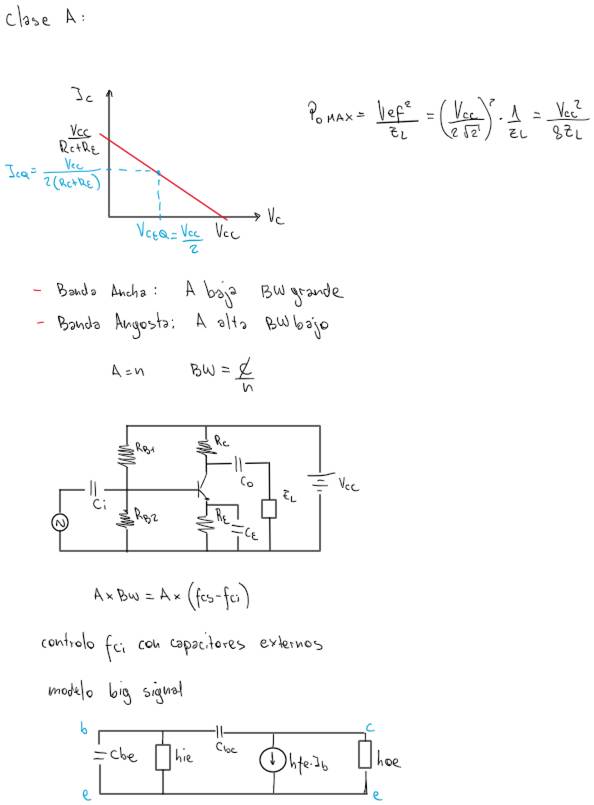 Clase A:
Ic
Vcc/(Rc+RE)
ICQ = Vcc/(2(Rc+RE))
VCEQ = Vcc/2
Vcc
Vc
Po MAX = Vef²/ZL = (Vcc/(2√2))² · 1/ZL = Vcc²/(8ZL)
- Banda Ancha: A baja BW grande
- Banda Angosta: A alta BW bajo
A = n BW = ¢/n
RB1
Rc
Co
Vcc
ZL
Ci
RB2
RE
CE
A × BW = A × (fcs - fci)
controlo fci con capacitores externos
modelo big signal
b
Cbc
c
Cbe
hie
hfe·Ib
hoe
e
e